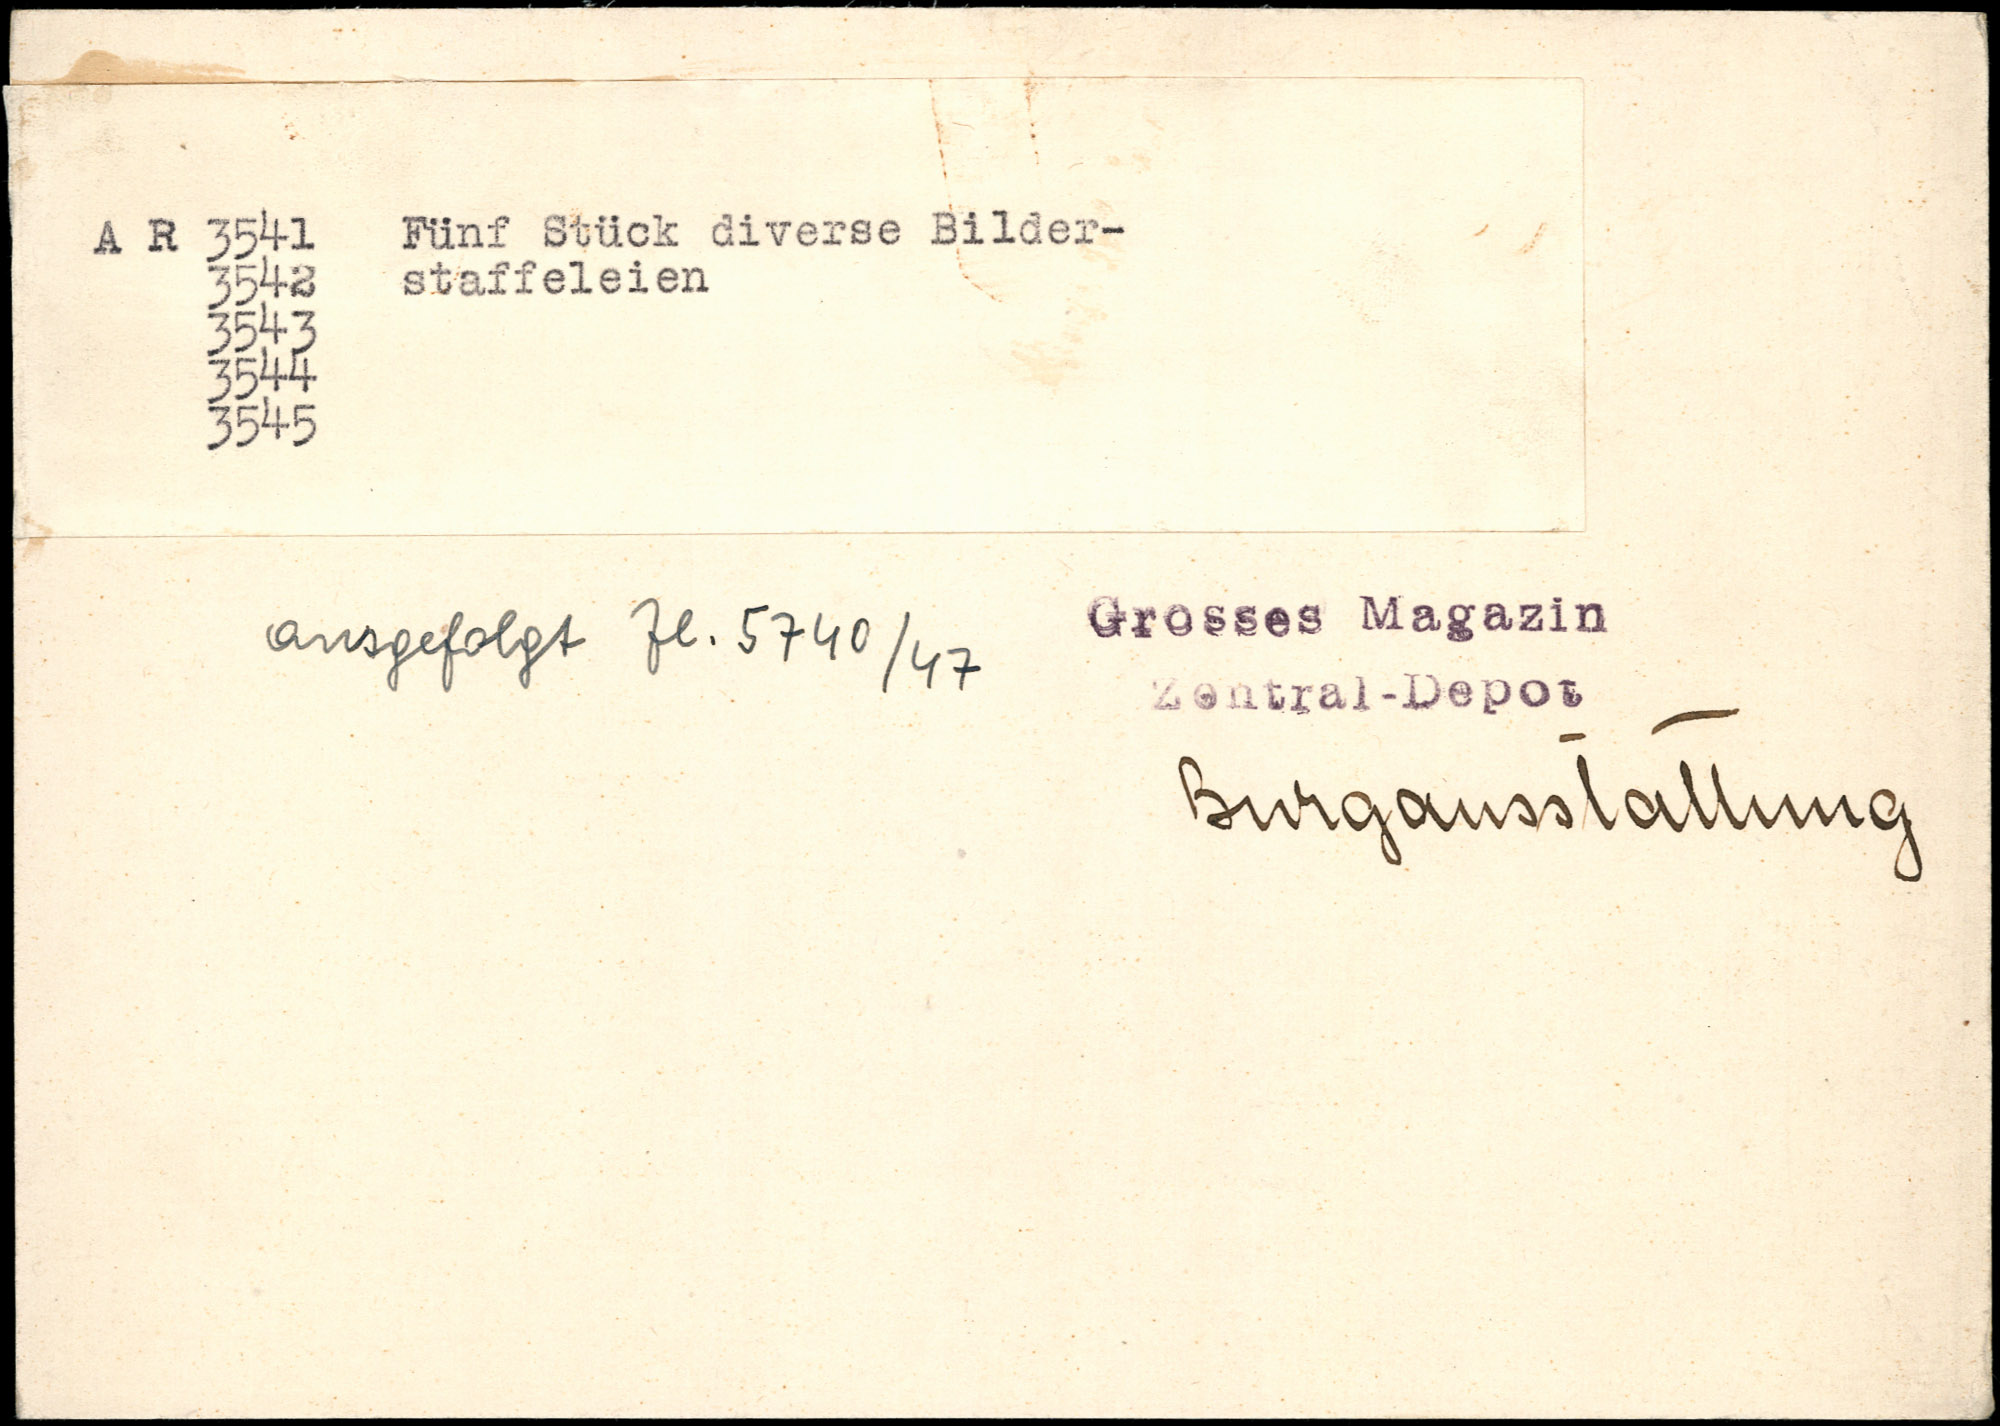 A R 3541 Fünf Stück diverse Bilder-
3542 staffeleien
3543
3544
3545
ausgefolgt Zl. 5740/47
Grosses Magazin
Zentral-Depot
Burgausstattung